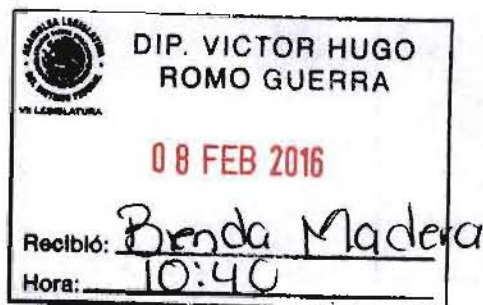 ASAMBLEA LEGISLATIVA
DEL DISTRITO FEDERAL
VII LEGISLATURA
DIP. VICTOR HUGO
ROMO GUERRA
08 FEB 2016
Recibió: Brenda Madera
Hora: 10:40